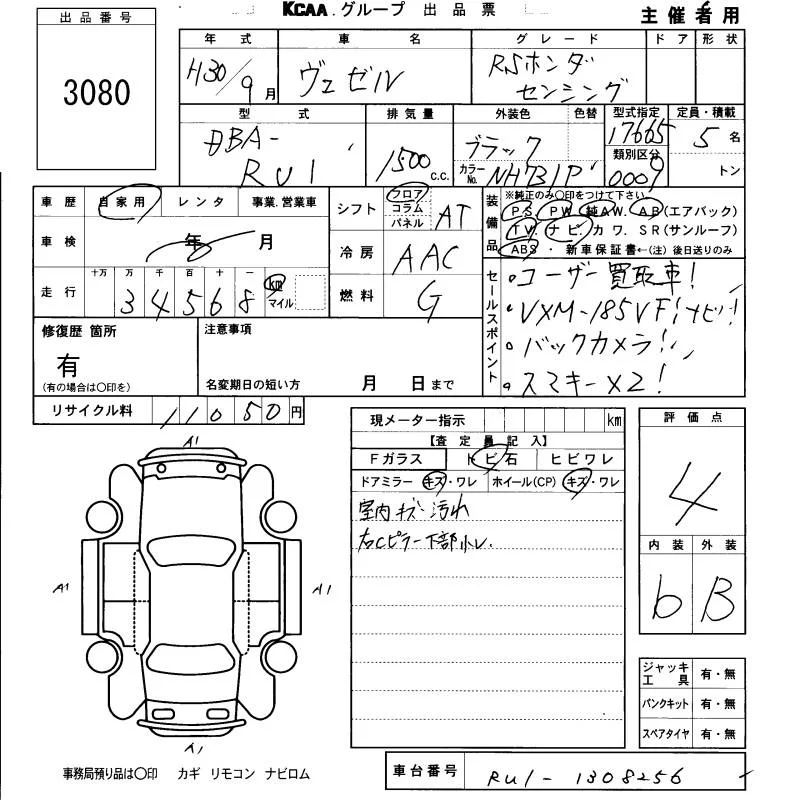 KCAA グループ 出品票
主催者用
出品番号
3080
年式 車名 グレード ドア 形状
H30/9月 ヴェゼル RSホンダ
センシング
型式 排気量 外装色 色替 型式指定 定員・積載
DBA- 1500 c.c. ブラック 17665 5名
RU1 カラーNo. NH731P 類別区分 0009 トン
車歴 自家用 レンタ 事業.営業車
車検 年 月
走行 十万 万 千 百 十 一
34568 km マイル
シフト フロア コラム パネル AT
冷房 AAC
燃料 G
装備品 ※純正のみ〇印をつけて下さい
PS. PW. 純AW. AB(エアバック)
TV. ナビ. カワ. SR(サンルーフ)
ABS ・ 新車保証書←(注) 後日送りのみ
セールスポイント
◦ユーザー買取車!
◦VXM-185VFiナビ!!
◦バックカメラ!!
◦スマキー×2!
修復歴 箇所 注意事項
有
(有の場合は〇印を) 名変期日の短い方 月 日まで
リサイクル料 11050円
現メーター指示 km
【査定員記入】
Fガラス トビ石 ヒビワレ
ドアミラー キズ・ワレ ホイール(CP) キズ・ワレ
室内キズ・汚れ
右Cピラー下部小レ.
評価点
4
内装 外装
b B
A1
A1 A1
A1
ジャッキ工具 有・無
パンクキット 有・無
スペアタイヤ 有・無
事務局預り品は〇印 カギ リモコン ナビロム
車台番号 RU1-1308256